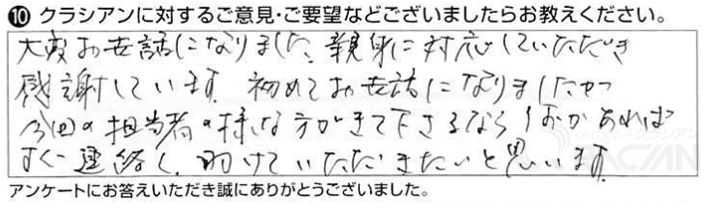 ⑩ クラシアンに対するご意見・ご要望などございましたらお教えください。
大変お世話になりました。親身に対応していただき
感謝しています。初めてお世話になりましたが
今回の担当者の様な方がきて下さるなら何かあれば
すぐ連絡し、助けていただきたいと思います。
アンケートにお答えいただき誠にありがとうございました。